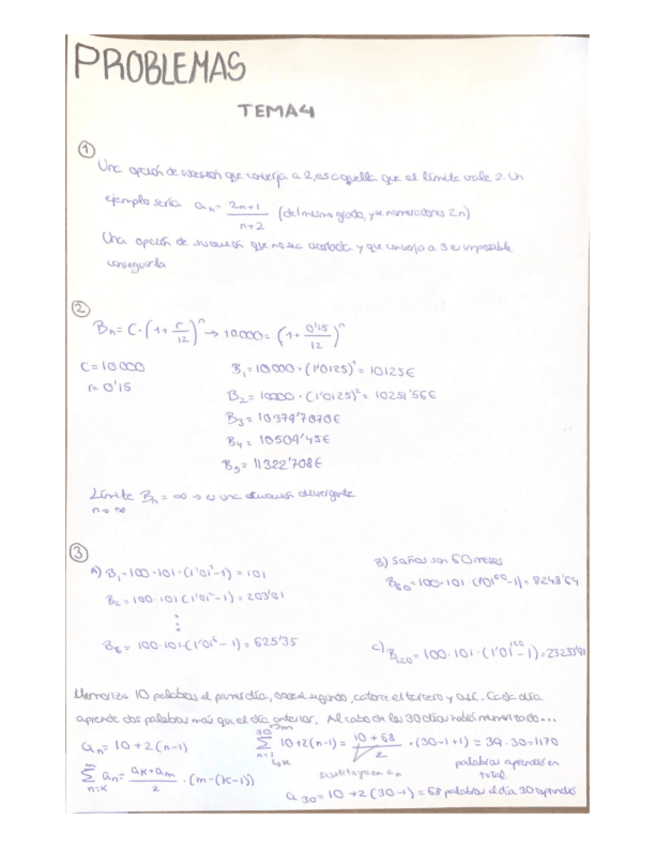 PROBLEMAS
TEMA 4
①
Una opción de sucesión que converja a 2, es aquella que el límite vale 2. Un
ejemplo sería an = 2n+1 / n+2 (del mismo grado, y
Una opción de sucesión que no sea acotada y que converja a 3 es imposible
conseguirla
②
Bn = C · (1 + r/12)^n → 10.000 = (1 + 0'15/12)^n
C = 10000
r = 0'15
B1 = 10000 · (1'0125)^1 = 10125€
B2 = 10000 · (1'0125)^2 = 10251'56€
B3 = 10379'7070€
B4 = 10509'45€
B9 = 11322'708€
Límite Bn = ∞ → es una sucesión divergente
n→∞
③
A) B1 = 100 · 101 · (1'01^1 - 1) = 101
B2 = 100 · 101 (1'01^2 - 1) = 203'01
⋮
B6 = 100 · 101 · (1'01^6 - 1) = 625'35
B) 5 años son 60 meses
B60 = 100 · 101 · (1'01^60 - 1) = 8248'64
C) B120 = 100 · 101 · (1'01^120 - 1) = 23233'91
Memoriza 10 palabras el primer día, doce el segundo, catorce el tercero y así. Cada día
aprende dos palabras más que el día anterior. Al cabo de los 30 días habrá memorizado...
an = 10 + 2(n-1)
∑ an = ak + am / 2 · (m - (k-1))
n=k
30→m
∑ 10 + 2(n-1) = 10 + 68 / 2 · (30 - 1 + 1) = 39 · 30 = 1170
n=1
↳k
palabras aprendió en
total
sustituyo en an
a30 = 10 + 2(30-1) = 68 palabras el día 30 aprendió